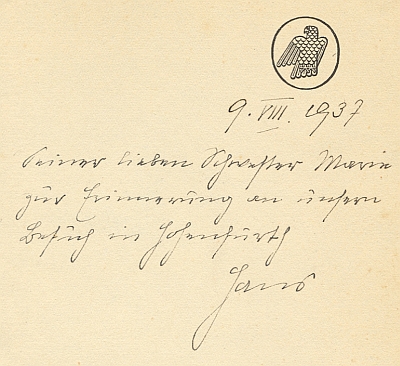 9. VIII. 1937
Seiner lieben Schwester Marie
zur Erinnerung an unsern
Besuch in Hohenfurth
Hans